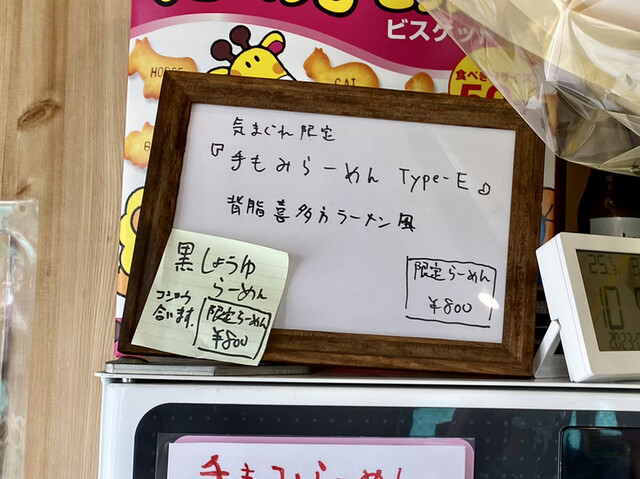 ビスケット
HORSE
CAT
気まぐれ限定
『手もみらーめん Type-E』
背脂喜多方ラーメン風
限定らーめん
¥800
黒しょうゆ
らーめん
コショウ
合います。
限定らーめん
¥800
25.3
手もみらーめん